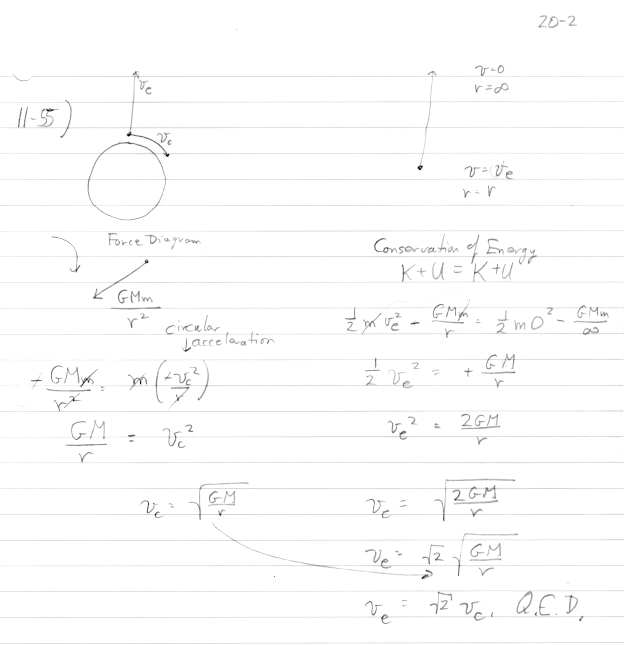 20-2
11-55)
v_c
v_c
Force Diagram
GMm / r²
circular
↓acceleration
-GMm / r² = m(-v_c² / r)
GM / r = v_c²
v_c = √(GM / r)
v=0
r=∞
v=v_e
r=r
Conservation of Energy
K+U = K+U
1/2 m v_e² - GMm / r = 1/2 m0² - GMm / ∞
1/2 v_e² = + GM / r
v_e² = 2GM / r
v_c = √(2GM / r)
v_e = √2 √(GM / r)
v_e = √2 v_c. Q.E.D.